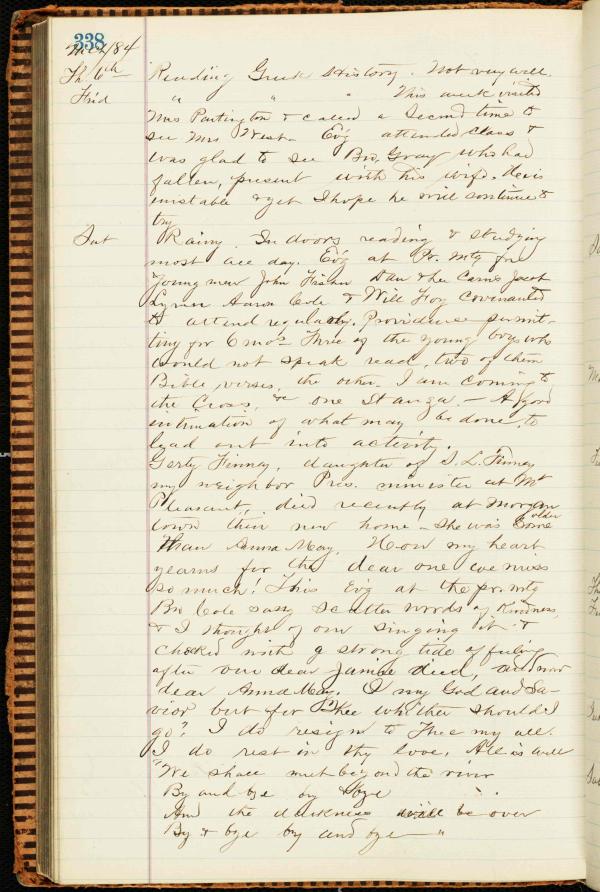 338
Mch/84
Th 6th Reading Greek History. Not very well.
Frid " " " This week visited
Mrs Partington & called a second time to
see Mrs West. Ev'g attended class &
was glad to see Bro. Gray who had
fallen, present with his wife. He is
unstable & yet I hope he will continue to
try.
Sat Rainy. In doors reading & studying
most all day. Ev'g at Pr. Mtg for
young men John Fisher Dan & Lee Carns Jacob
Lynn Aaron Cole & Will Foy covenanted
to attend regularly, Providence permit-
ting for 6 mos. Three of the young boys who
would not speak read, two of them
Bible verses, the other. I am coming to
the Cross, &c one stanza. - A good
intimation of what may be done, to
lead out into activity.
Gerty Finney, daughter of S. L. Finney
my neighbor Pres. minister at Mt
Pleasant, died recently at Morgan
town their new home - She was some older
than Anna May. How my heart
yearns for the dear one we miss
so much! This Ev'g at the pr. mtg
Bro Cole sang Scatter words of kindness,
& I thought of our singing it &
choked with a strong tide of feeling
after our dear Janie died, and now
dear Anna May. O my God and Sa-
vior but for Thee whither should I
go? I do resign to Thee my all.
I do rest in thy love. All is well
"We shall meet beyond the river
By and bye by & bye
And the darkness will be over
By & bye by and bye - "